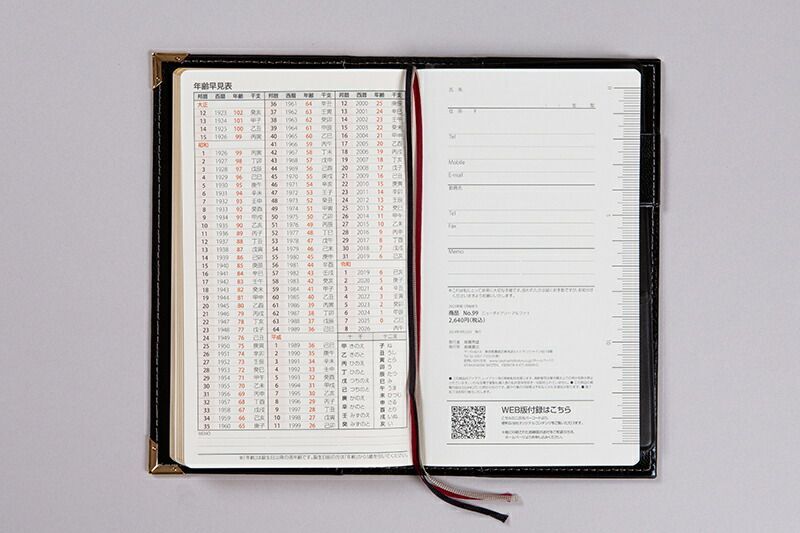 年齢早見表
邦暦 西暦 年齢 干支
大正
12 1923 102 癸亥
13 1924 101 甲子
14 1925 100 乙丑
15 1926 99 丙寅
昭和
1 1926 99 丙寅
2 1927 98 丁卯
3 1928 97 戊辰
4 1929 96 己巳
5 1930 95 庚午
6 1931 94 辛未
7 1932 93 壬申
8 1933 92 癸酉
9 1934 91 甲戌
10 1935 90 乙亥
11 1936 89 丙子
12 1937 88 丁丑
13 1938 87 戊寅
14 1939 86 己卯
15 1940 85 庚辰
16 1941 84 辛巳
17 1942 83 壬午
18 1943 82 癸未
19 1944 81 甲申
20 1945 80 乙酉
21 1946 79 丙戌
22 1947 78 丁亥
23 1948 77 戊子
24 1949 76 己丑
25 1950 75 庚寅
26 1951 74 辛卯
27 1952 73 壬辰
28 1953 72 癸巳
29 1954 71 甲午
30 1955 70 乙未
31 1956 69 丙申
32 1957 68 丁酉
33 1958 67 戊戌
34 1959 66 己亥
35 1960 65 庚子
MEMO
邦暦 西暦 年齢 干支
36 1961 64 辛丑
37 1962 63 壬寅
38 1963 62 癸卯
39 1964 61 甲辰
40 1965 60 乙巳
41 1966 59 丙午
42 1967 58 丁未
43 1968 57 戊申
44 1969 56 己酉
45 1970 55 庚戌
46 1971 54 辛亥
47 1972 53 壬子
48 1973 52 癸丑
49 1974 51 甲寅
50 1975 50 乙卯
51 1976 49 丙辰
52 1977 48 丁巳
53 1978 47 戊午
54 1979 46 己未
55 1980 45 庚申
56 1981 44 辛酉
57 1982 43 壬戌
58 1983 42 癸亥
59 1984 41 甲子
60 1985 40 乙丑
61 1986 39 丙寅
62 1987 38 丁卯
63 1988 37 戊辰
64 1989 36 己巳
平成
1 1989 36 己巳
2 1990 35 庚午
3 1991 34 辛未
4 1992 33 壬申
5 1993 32 癸酉
6 1994 31 甲戌
7 1995 30 乙亥
8 1996 29 丙子
9 1997 28 丁丑
10 1998 27 戊寅
11 1999 26 己卯
邦暦 西暦 年齢 干支
12 2000 25 庚辰
13 2001 24 辛巳
14 2002 23 壬午
15 2003 22 癸未
16 2004 21 甲申
17 2005 20 乙酉
18 2006 19 丙戌
19 2007 18 丁亥
20 2008 17 戊子
21 2009 16 己丑
22 2010 15 庚寅
23 2011 14 辛卯
24 2012 13 壬辰
25 2013 12 癸巳
26 2014 11 甲午
27 2015 10 乙未
28 2016 9 丙申
29 2017 8 丁酉
30 2018 7 戊戌
31 2019 6 己亥
令和
1 2019 6 己亥
2 2020 5 庚子
3 2021 4 辛丑
4 2022 3 壬寅
5 2023 2 癸卯
6 2024 1 甲辰
7 2025 0 乙巳
8 2026 丙午
十干 十二支
甲 きのえ 子 ね
乙 きのと 丑 うし
丙 ひのえ 寅 とら
丁 ひのと 卯 う
戊 つちのえ 辰 たつ
己 つちのと 巳 み
庚 かのえ 午 うま
辛 かのと 未 ひつじ
壬 みずのえ 申 さる
癸 みずのと 酉 とり
戌 いぬ
亥 い
氏 名
住 所 〒
Tel
Mobile
E-mail
勤務先
Tel
Fax
Memo
商品 No.99
2,640円(税込)
WEB版付録はこちら